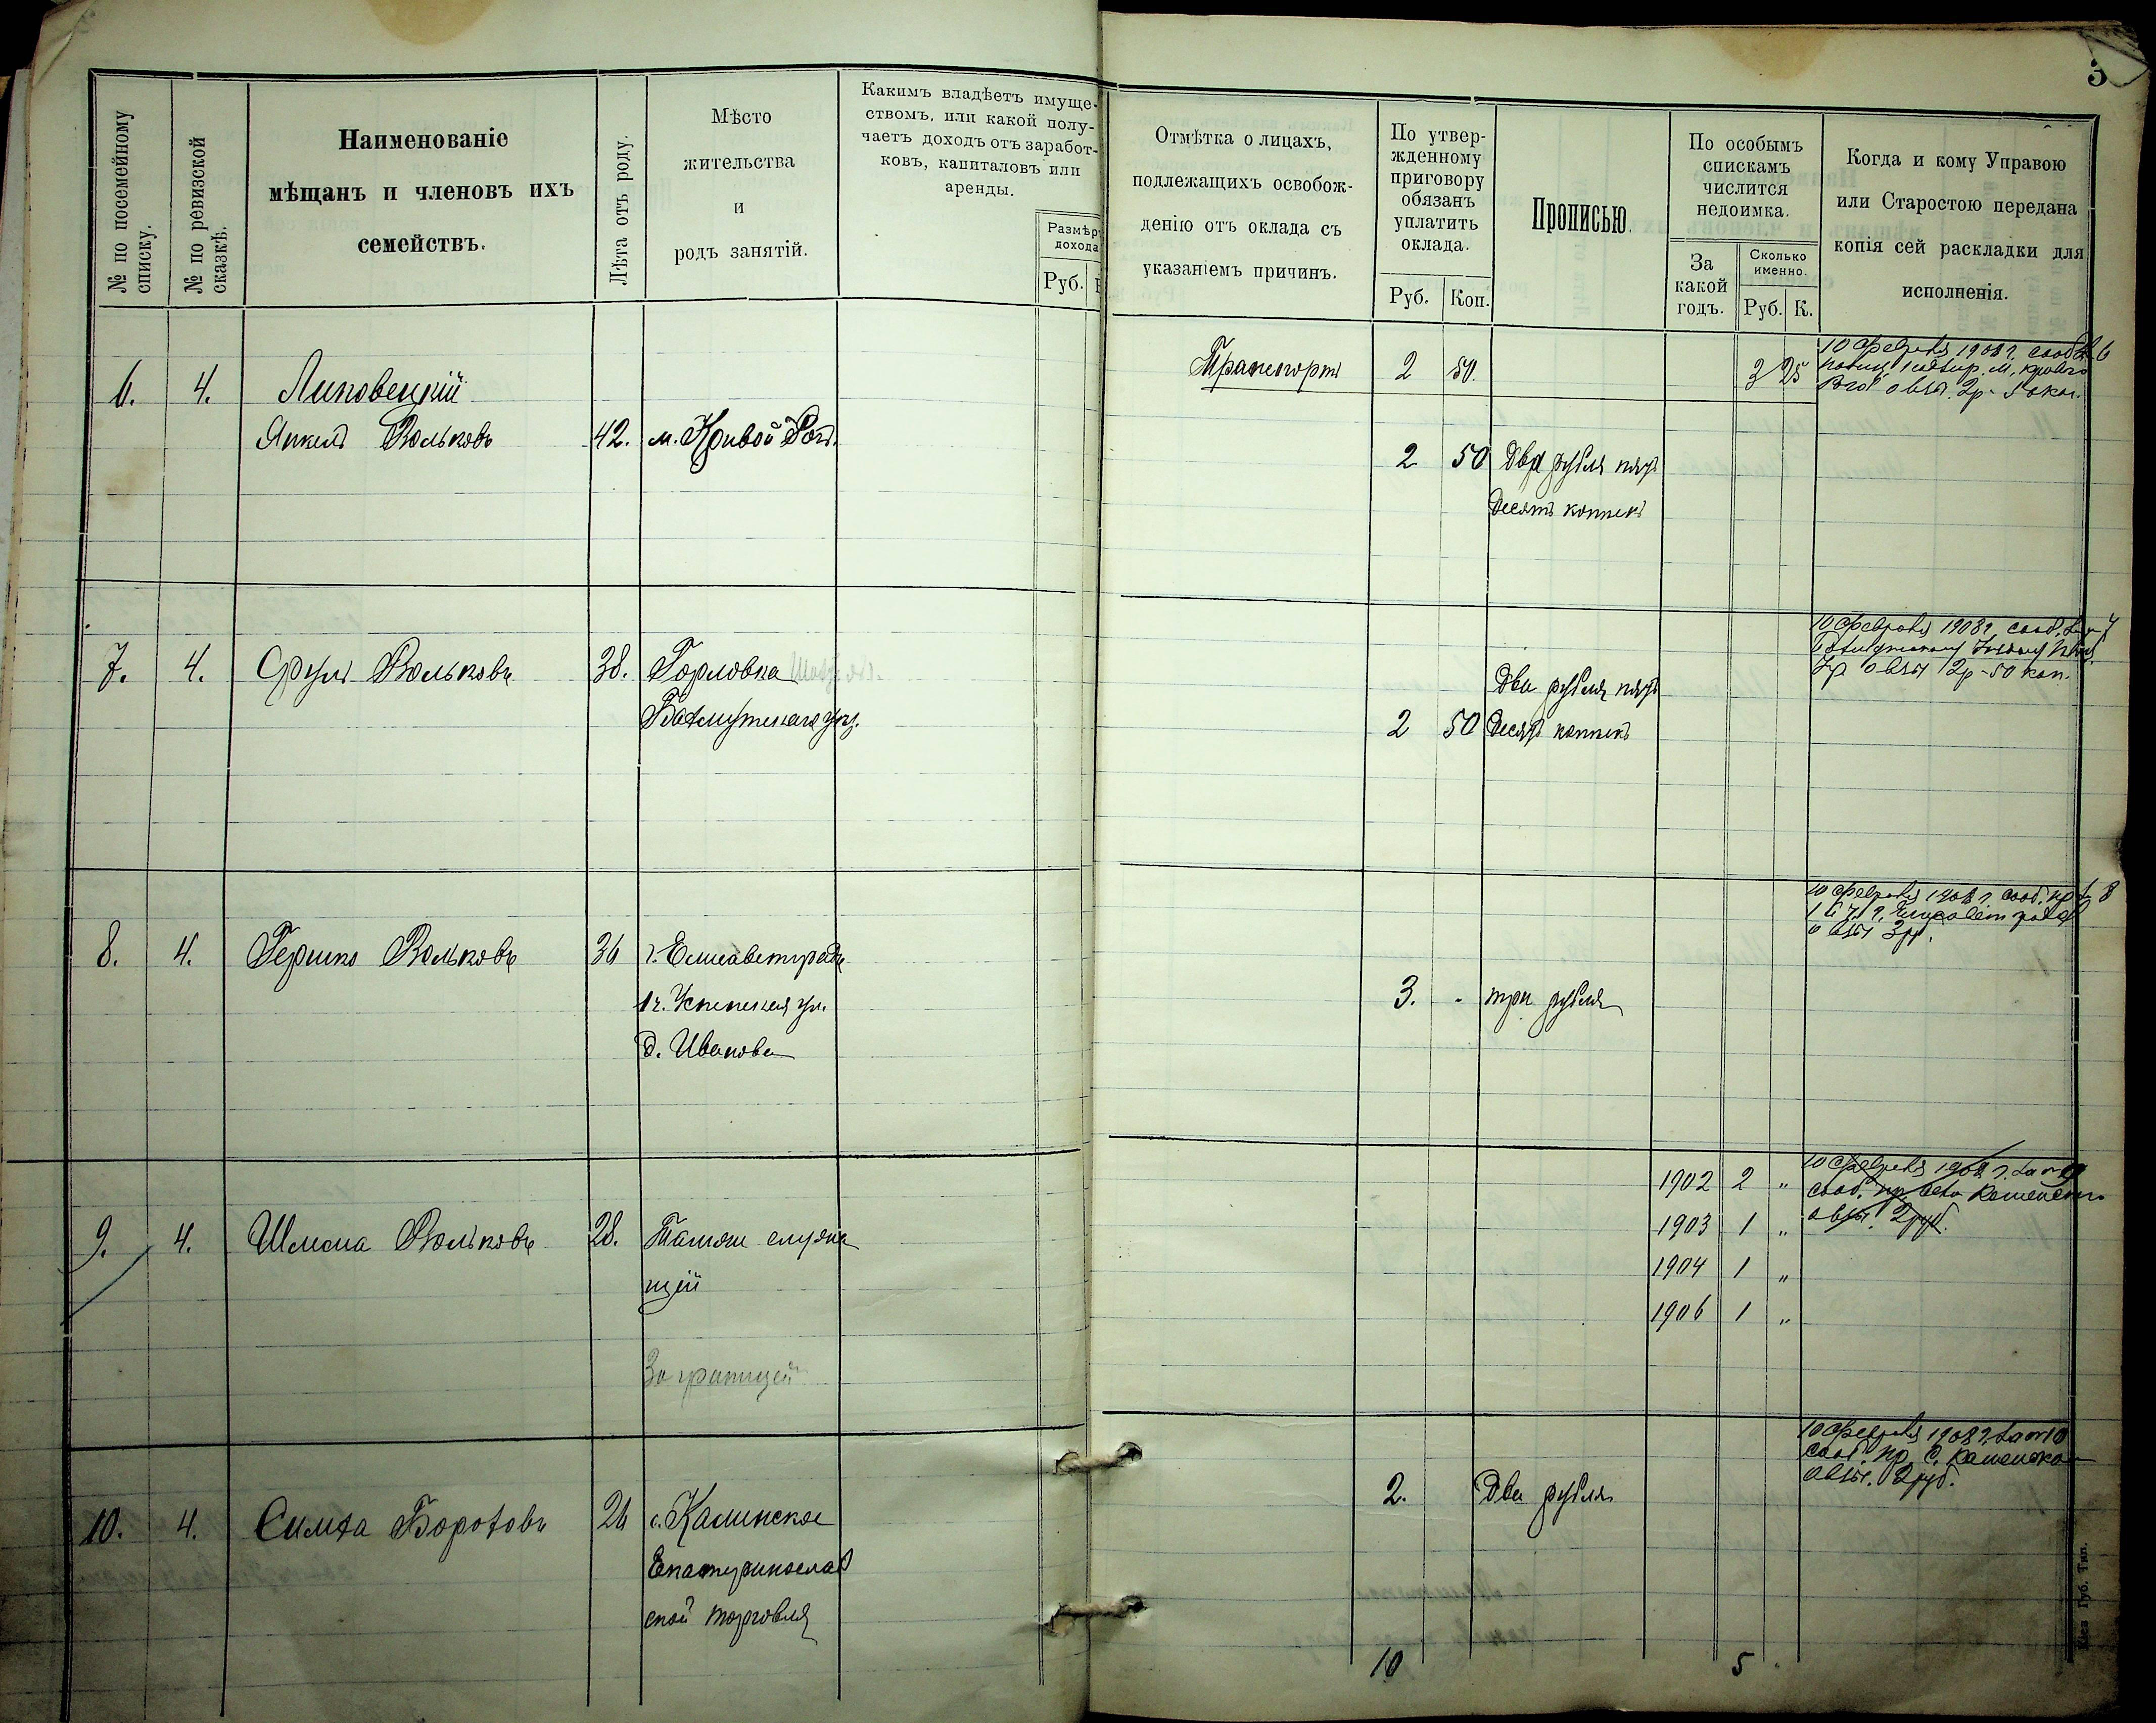 3
№ по посемейному списку.
№ по ревизской сказкѣ.
Наименованіе
мѣщанъ и членовъ ихъ
семействъ.
Лѣта отъ роду.
Мѣсто
жительства
и
родъ занятій.
Какимъ владѣетъ имуще-
ствомъ, или какой полу-
чаетъ доходъ отъ заработ-
ковъ, капиталовъ или
аренды.
Размѣр
дохода
Руб.
Отмѣтка о лицахъ,
подлежащихъ освобож-
денію отъ оклада съ
указаніемъ причинъ.
По утвер-
жденному
приговору
обязанъ
уплатить
оклада.
Руб. Коп.
Прописью.
По особымъ
спискамъ
числится
недоимка.
За
какой
годъ.
Сколько
именно.
Руб. К.
Когда и кому Управою
или Старостою передана
копія сей раскладки для
исполненія.
Транспортъ 2 50. 3 25
10 Февраля 1908 г. сооб. 6
6. 4. Липовецкій
Янкель Вольковъ 42. м. Кривой Рогъ.
2 50 Два рубля пять
десятъ копѣекъ
10 Февраля 1908 г. сооб. 7
2р - 50 коп.
7. 4. Сруль Вольковъ 38. Горловка
Бахмутскаго у.
Два рубля пять
2 50 десятъ копѣекъ
10 Февраля 1908 г. сооб. 8
3р.
8. 4. Гершко Вольковъ 36 г. Елисаветградъ
1 ч. Успенская ул.
д. Иванова
3. - три рубля
10 Февраля 1908 г. 9
сооб. Каменское
2 руб.
1902 2 "
1903 1 "
1904 1 "
1906 1 "
9. 4. Шлема Вольковъ 28. Тамъ же служа
щій
За границей
10 Февраля 1908 г. 10
сооб. с. Каменско
2 руб.
10. 4. Симха Бороховъ 26 с. Каминское
Екатеринослав
ской торговля
2. Два рубля
10 5
Губ. Тип.